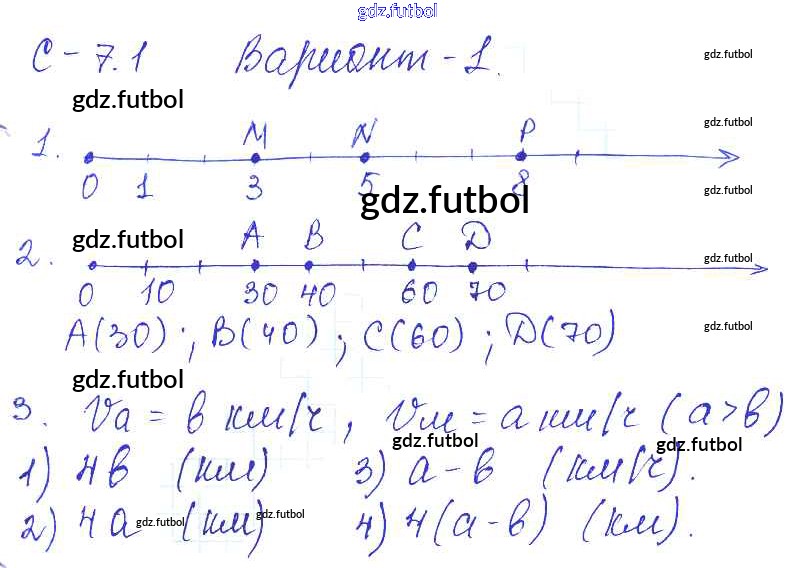 gdz.futbol
С-7.1 Вариант-1. gdz.futbol
gdz.futbol
gdz.futbol
M N P
1.
0 1 3 5 8 gdz.futbol
gdz.futbol
gdz.futbol A B C D
2. gdz.futbol
0 10 30 40 60 70
A(30); B(40); C(60); D(70) gdz.futbol
gdz.futbol
3. Va = в км/ч, Vм = а км/ч (а>в)
gdz.futbol gdz.futbol
1) 4в (км) 3) а-в (км/ч).
2) 4а (км) 4) 4(а-в) (км).
gdz.futbol gdz.futbol